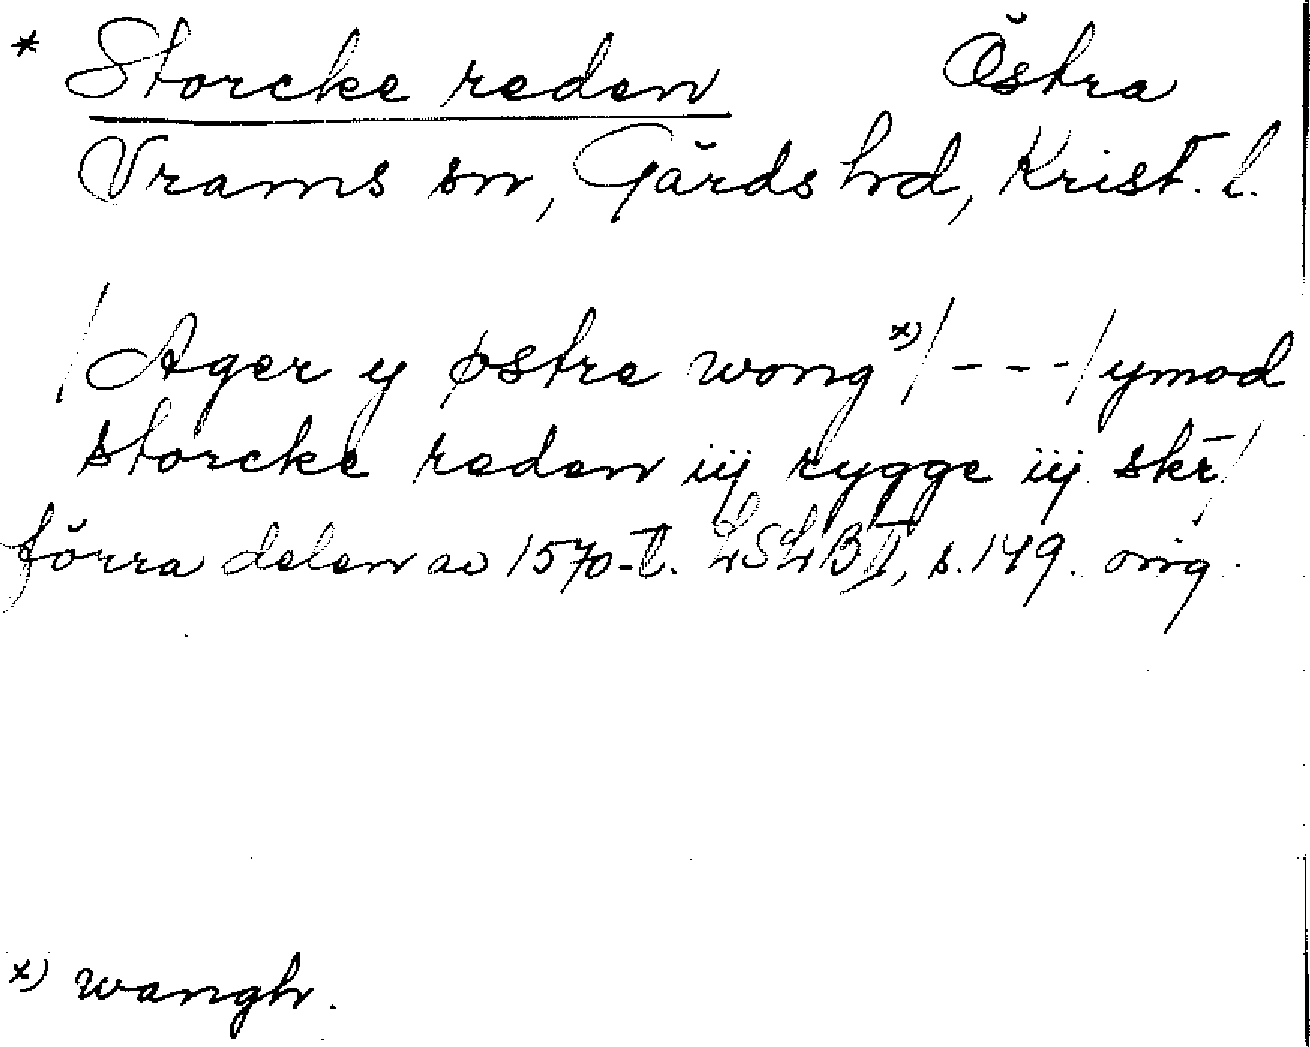 * Storcke reden Östra
Vrams sn, Gärds hd, Krist. l.
/Ager y østre wong x)/ - - - / ymod
storcke reden iij rygge iij skē/
förra delen av 1570-t. LSLB I, s. 149. orig.
x) wangh.